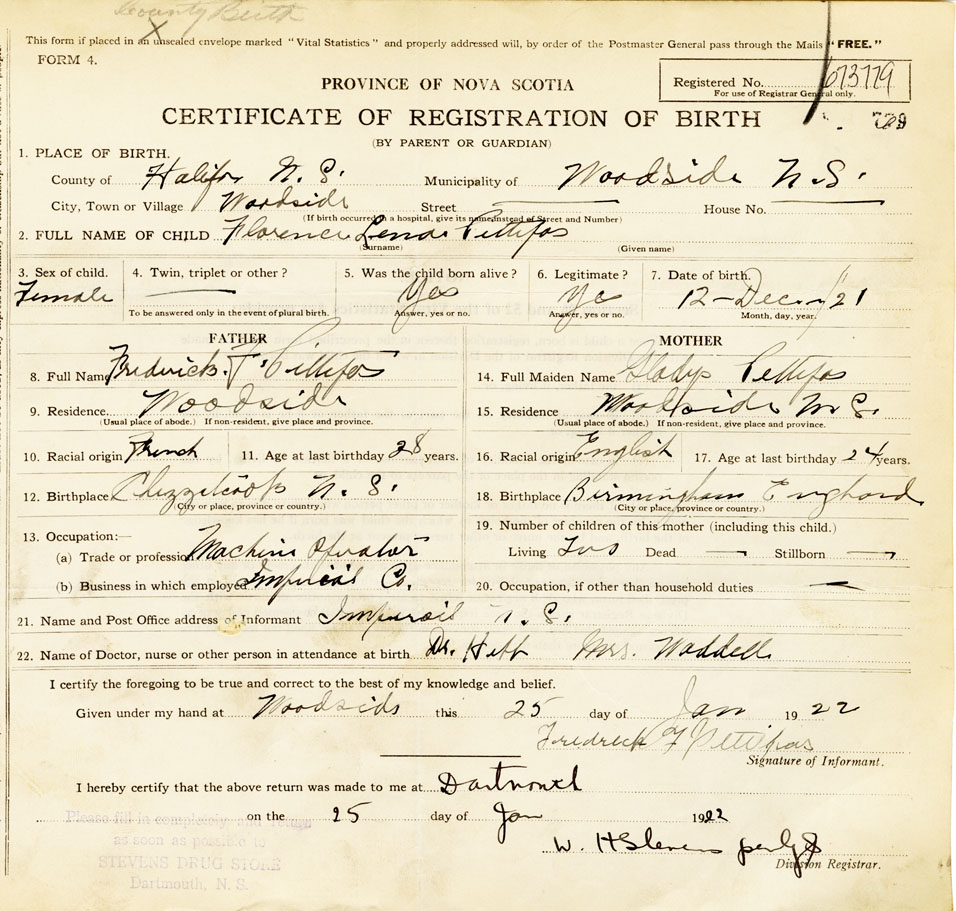 County Birth
X
This form if placed in an unsealed envelope marked "Vital Statistics" and properly addressed will, by order of the Postmaster General pass through the Mails "FREE."
FORM 4.
PROVINCE OF NOVA SCOTIA
Registered No. 673779
For use of Registrar General only.
CERTIFICATE OF REGISTRATION OF BIRTH
(BY PARENT OR GUARDIAN)
1. PLACE OF BIRTH.
County of Halifax N. S. Municipality of Woodside N.S.
City, Town or Village Woodside Street House No.
(If birth occurred in a hospital, give its name instead of Street and Number)
2. FULL NAME OF CHILD Florence Lena Pettifas
(Surname) (Given name)
3. Sex of child. 4. Twin, triplet or other? 5. Was the child born alive? 6. Legitimate? 7. Date of birth.
Female — Yes Yes 12-Dec 21
To be answered only in the event of plural birth. Answer, yes or no. Answer, yes or no. Month, day, year.
FATHER MOTHER
8. Full Name Fredrick F. Pettifas 14. Full Maiden Name Gladys Pettifas
9. Residence. Woodside 15. Residence Woodside N.S.
(Usual place of abode.) If non-resident, give place and province. (Usual place of abode.) If non-resident, give place and province.
10. Racial origin French 11. Age at last birthday 28 years. 16. Racial origin English 17. Age at last birthday 24 years.
12. Birthplace Chezzetcook N. S. 18. Birthplace Birmingham England
(City or place, province or country.) (City or place, province or country.)
13. Occupation:— 19. Number of children of this mother (including this child.)
(a) Trade or profession Machine Operator Living Two Dead — Stillborn —
(b) Business in which employed Imperial Co. 20. Occupation, if other than household duties —
21. Name and Post Office address of Informant Imperoil N. S.
22. Name of Doctor, nurse or other person in attendance at birth Dr. Hebb Mrs. Waddell
I certify the foregoing to be true and correct to the best of my knowledge and belief.
Given under my hand at Woodside this 25 day of Jan 1922
Fredrick F Pettipas
Signature of Informant.
I hereby certify that the above return was made to me at Dartmouth
on the 25 day of Jan 1922
W. H Stevens
Division Registrar.
Please fill in completely and return
as soon as possible to
STEVENS DRUG STORE
Dartmouth, N. S.